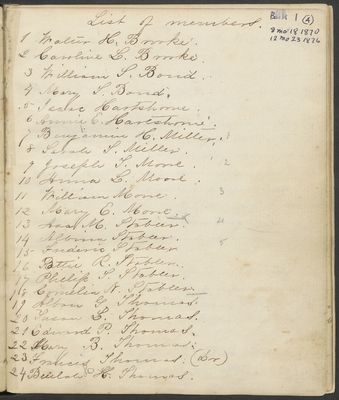 List of members.
Book 1 (A)
8 mo 18 1870
12 mo 23 1876
1 Walter H. Brooke.
2 Caroline L. Brooke.
3 William S. Bond.
4 Mary S. Bond.
5 Isaac Hartshorne.
6 Annie E. Hartshorne.
7 Benjamin H. Miller. 1
8 Sarah T. Miller.
9 Joseph T. Moore. 2
10 Anna L. Moore.
11 William Moore. 3
12 Mary E. Moore.
13 M. Stabler. 4
14 Albina Stabler.
15 Frederic Stabler 5
16 Pattie R. Stabler.
17 Philip T. Stabler.
18 Cornelia N. Stabler
19 G. Thomas.
20 Susan L. Thomas.
21 Edward P. Thomas.
22 Mary B. Thomas.
23 Francis Thomas. (Dr)
24 Beulah H. Thomas.